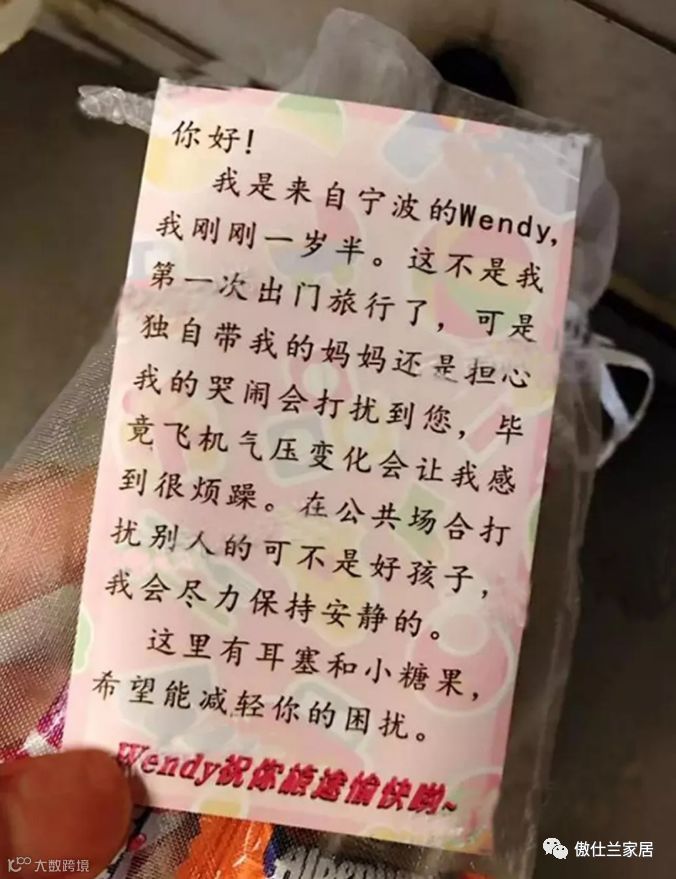 你好!
我是来自宁波的Wendy,
我刚刚一岁半。这不是我
第一次出门旅行了，可是
独自带我的妈妈还是担心
我的哭闹会打扰到您，毕
竟飞机气压变化会让我感
到很烦躁。在公共场合打
扰别人的可不是好孩子，
我会尽力保持安静的。
这里有耳塞和小糖果，
希望能减轻你的困扰。
Wendy祝你旅途愉快哟~
傲仕兰家居
大数跨境